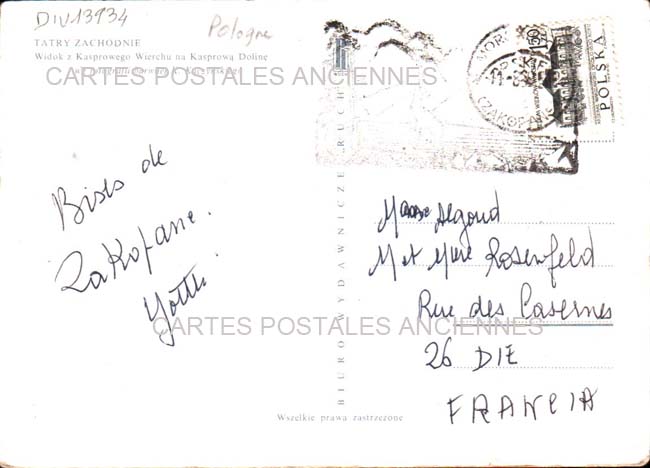 DIV13934
Pologne
TATRY ZACHODNIE
Widok z Kasprowego Wierchu na Kasprową Dolinę
CARTES POSTALES ANCIENNES
BIURO WYDAWNICZE RUCH
POLSKA
Bises de
Zakopane.
M et Mme Rosenfeld
Rue des Casernes
CARTES POSTALES ANCIENNES
26 DIE
FRANCIA
Wszelkie prawa zastrzeżone